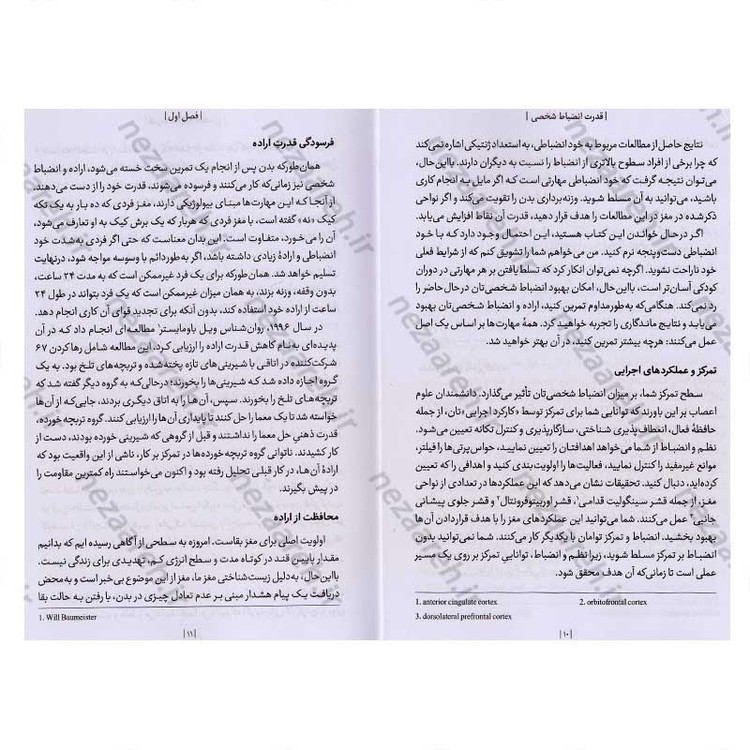 | قدرت انضباط شخصی |
نتایج حاصل از مطالعات مربوط به خود انضباطی، به استعداد ژنتیکی اشاره نمی‌کند
که چرا برخی از افراد سطوح بالاتری از انضباط را نسبت به دیگران دارند. بااین‌حال،
می‌توان نتیجه گرفت که خود انضباطی مهارتی است که اگر مایل به انجام کاری
باشید، می‌توانید به آن مسلط شوید. وزنه‌برداری بدن را تقویت می‌کند و اگر نواحی
ذکرشده در مغز در این مطالعات را هدف قرار دهید، قدرت آن نقاط افزایش می‌یابد.
اگر در حال خواندن این کتاب هستید، این احتمال وجود دارد که با خود
انضباطی دست‌وپنجه نرم کنید. من می‌خواهم شما را تشویق کنم که از شرایط فعلی
خود ناراحت نشوید. اگرچه نمی‌توان انکار کرد که تسلط‌یافتن بر هر مهارتی در دوران
کودکی آسان‌تر است، بااین‌حال، امکان بهبود انضباط شخصی‌تان در حال حاضر را
رد نمی‌کند. هنگامی‌که به‌طور مداوم تمرین کنید، اراده و انضباط شخصی‌تان بهبود
می‌یابد و نتایج ماندگاری را تجربه خواهید کرد. همهٔ مهارت‌ها بر اساس یک اصل
عمل می‌کنند: هرچه بیشتر تمرین کنید، در آن بهتر خواهید شد.
تمرکز و عملکردهای اجرایی
سطح تمرکز شما، بر میزان انضباط شخصی‌تان تأثیر می‌گذارد. دانشمندان علوم
اعصاب بر این باورند که توانایی شما برای تمرکز توسط «کارکرد اجرایی»تان، از جمله
حافظهٔ فعال، انعطاف‌پذیری شناختی، سازگارپذیری و کنترل تکانه تعیین می‌شود.
نظم و انضباط از شما می‌خواهد اهدافتان را تعیین نمایید، حواس‌پرتی‌ها را فیلتر،
موانع غیرمفید را کنترل نمایید، فعالیت‌ها را اولویت‌بندی کنید و اهدافی را که تعیین
کرده‌اید، دنبال کنید. تحقیقات نشان می‌دهد که این عملکردها در تعدادی از نواحی
مغز، از جمله قشر سینگولیت قدامی۱، قشر اوربیتوفرونتال۲ و قشر جلوی پیشانی
جانبی۳ عمل می‌کنند. شما می‌توانید این عملکردهای مغز را با هدف قراردادن آن‌ها
بهبود بخشید. انضباط و تمرکز توامان با یکدیگر کار می‌کنند. شما نمی‌توانید بدون
انضباط بر تمرکز مسلط شوید، زیرا نظم و انضباط، تواناییِ تمرکز بر روی یک مسیر
عملی است تا زمانی‌که آن هدف محقق شود.
1. anterior cingulate cortex 2. orbitofrontal cortex
3. dorsolateral prefrontal cortex
| ۱۰ |
| فصل اول |
فرسودگی قدرتِ اراده
همان‌طورکه بدن پس از انجام یک تمرین سخت خسته می‌شود، اراده و انضباط
شخصی نیز زمانی‌که کار می‌کنند و فرسوده می‌شوند، قدرت خود را از دست می‌دهند،
از آنجا که این مهارت‌ها مبنای بیولوژیکی دارند، مغز فردی که ده بار به یک تکه
کیک «نه» گفته است، با مغز فردی که هربار که یک برش کیک به او تعارف می‌شود،
آن را می‌خورد، متفاوت است. این بدان معناست که حتی اگر فردی به‌شدت خود
انضباطی و ارادهٔ زیادی داشته باشد، اگر به‌طور دائم با وسوسه مواجه شود، درنهایت
تسلیم خواهد شد. همان‌طورکه برای یک فرد غیرممکن است که به مدت ۲۴ ساعت،
بدون وقفه، وزنه بزند، به همان میزان غیرممکن است که یک فرد بتواند در طول ۲۴
ساعت از اراده خود استفاده کند، بدون آنکه برای تجدید قوای آن کاری انجام دهد.
در سال ۱۹۹۶، روان‌شناس ویل باومایستر۱ مطالعه‌ای انجام داد که در آن
پدیده‌ای به‌نام کاهش قدرت اراده را ارزیابی کرد. این مطالعه شامل رها کردن ۶۷
شرکت‌کننده در اتاقی با شیرینی‌های تازه پخته‌شده و تربچه‌های تلخ بود. به یک
گروه اجازه داده شد که شیرینی‌ها را بخورند؛ درحالی‌که به گروه دیگر گفته شد که
تربچه‌های تلخ را بخورند. سپس، آن‌ها به اتاق دیگری بردند، جایی‌که از آن‌ها
خواسته شد تا یک معما را حل کنند تا پایداری آن‌ها را ارزیابی کنند. گروه تربچه خورده،
قدرت ذهنیِ حل معما را نداشتند و قبل از گروهی که شیرینی خورده بودند، دست از
کار کشیدند. ناتوانی گروه تربچه خورده‌ها در تمرکز بر کار، ناشی از این واقعیت بود که
ارادهٔ آن‌ها، در کار قبلی تحلیل رفته بود و اکنون می‌خواستند راه کمترین مقاومت را
در پیش بگیرند.
محافظت از اراده
اولویت اصلی برای مغز بقاست. امروزه به سطحی از آگاهی رسیده ایم که بدانیم
مقدار پایین قند در کوتاه مدت و سطح انرژی کم، تهدیدی برای زندگی نیست.
بااین‌حال، به‌دلیل زیست‌شناختی مغز ما، مغز از این موضوع بی‌خبر است و به‌محض
دریافت یک پیام هشدار مبنی بر عدم تعادل چیزی در بدن، با رفتن به حالت بقا
1. Will Baumeister
| ۱۱ |
nezaareh.ir